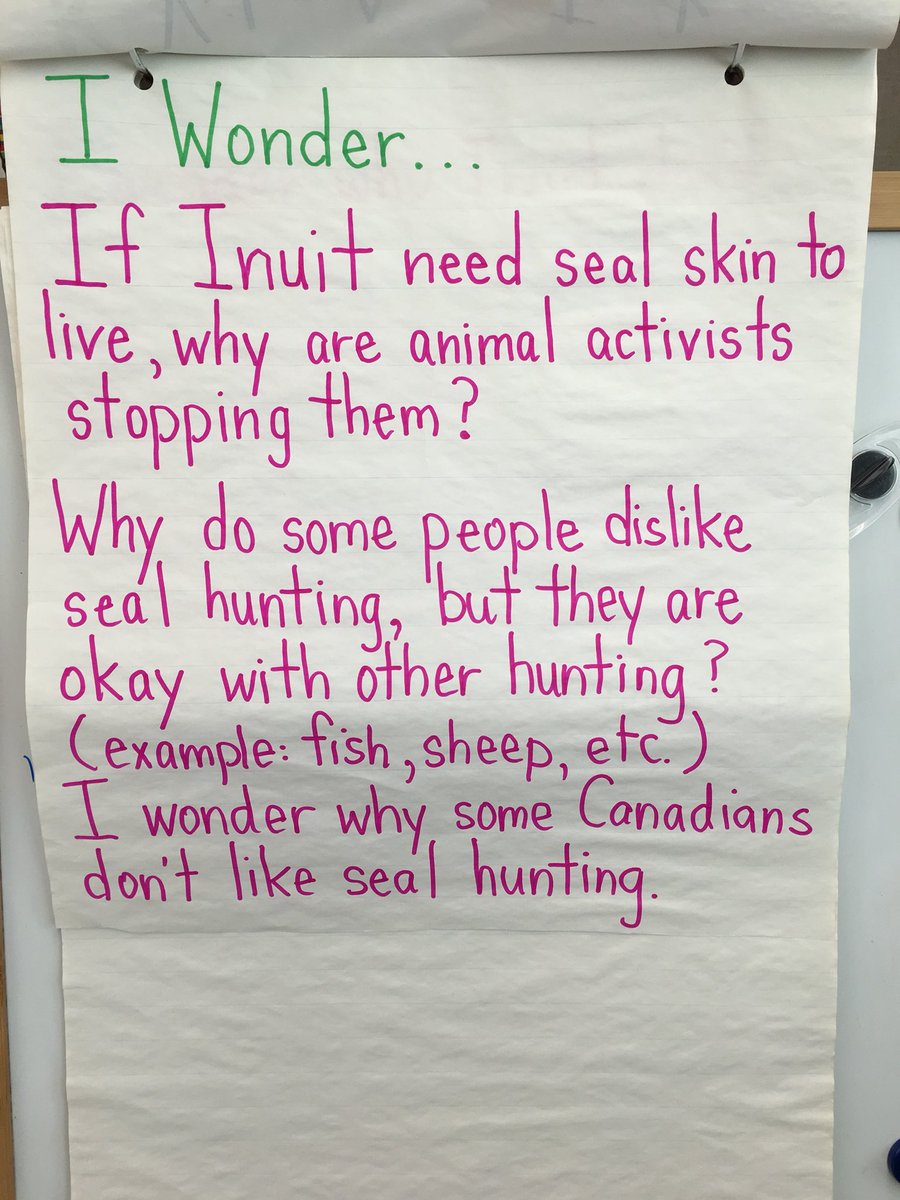 I Wonder...
If Inuit need seal skin to
live, why are animal activists
stopping them?
Why do some people dislike
seal hunting, but they are
okay with other hunting?
(example: fish, sheep, etc.)
I wonder why some Canadians
don't like seal hunting.